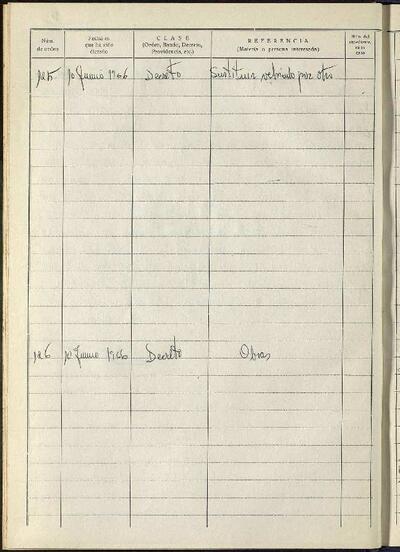 Núm. de orden
Fecha en que ha sido dictado
CLASE
(Orden, Bando, Decreto, Providencia, etc.)
REFERENCIA
(Materia o persona interesada)
Núm. del expediente,
125 10 Junio 1966 Decreto Sustituir vehiculo por otro
126 10 Junio 1966 Decreto Obras